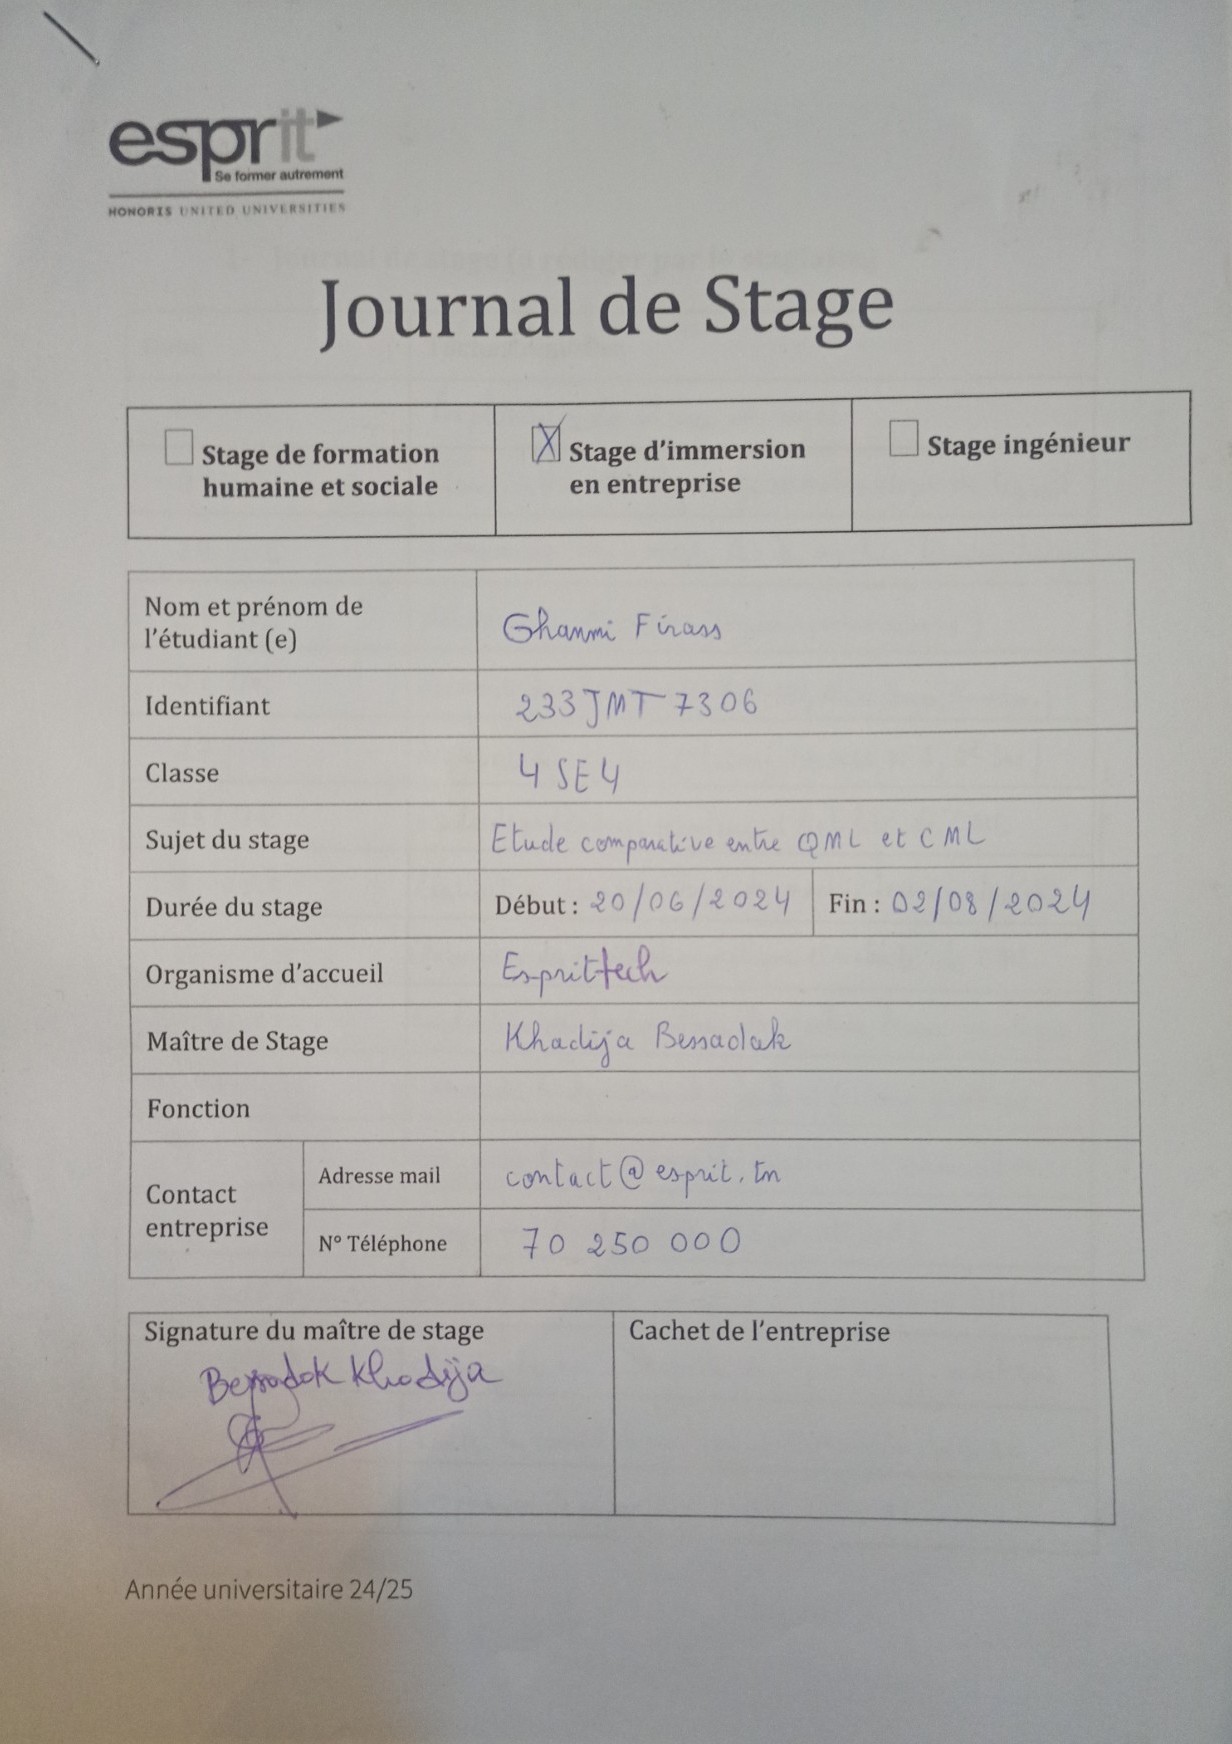 esprit
Se former autrement
HONORIS UNITED UNIVERSITIES
Journal de Stage
Stage de formation
humaine et sociale
X Stage d'immersion
en entreprise
Stage ingénieur
Nom et prénom de
l'étudiant (e)
Ghanmi Firass
Identifiant
233JMT7306
Classe
4SE4
Sujet du stage
Etude comparative entre QML et CML
Durée du stage
Début : 20/06/2024
Fin : 02/08/2024
Organisme d'accueil
Esprittech
Maître de Stage
Khadija Bessadak
Fonction
Contact
entreprise
Adresse mail
contact@esprit.tn
N° Téléphone
70 250 000
Signature du maître de stage
Bessadok Khadija
Cachet de l'entreprise
Année universitaire 24/25